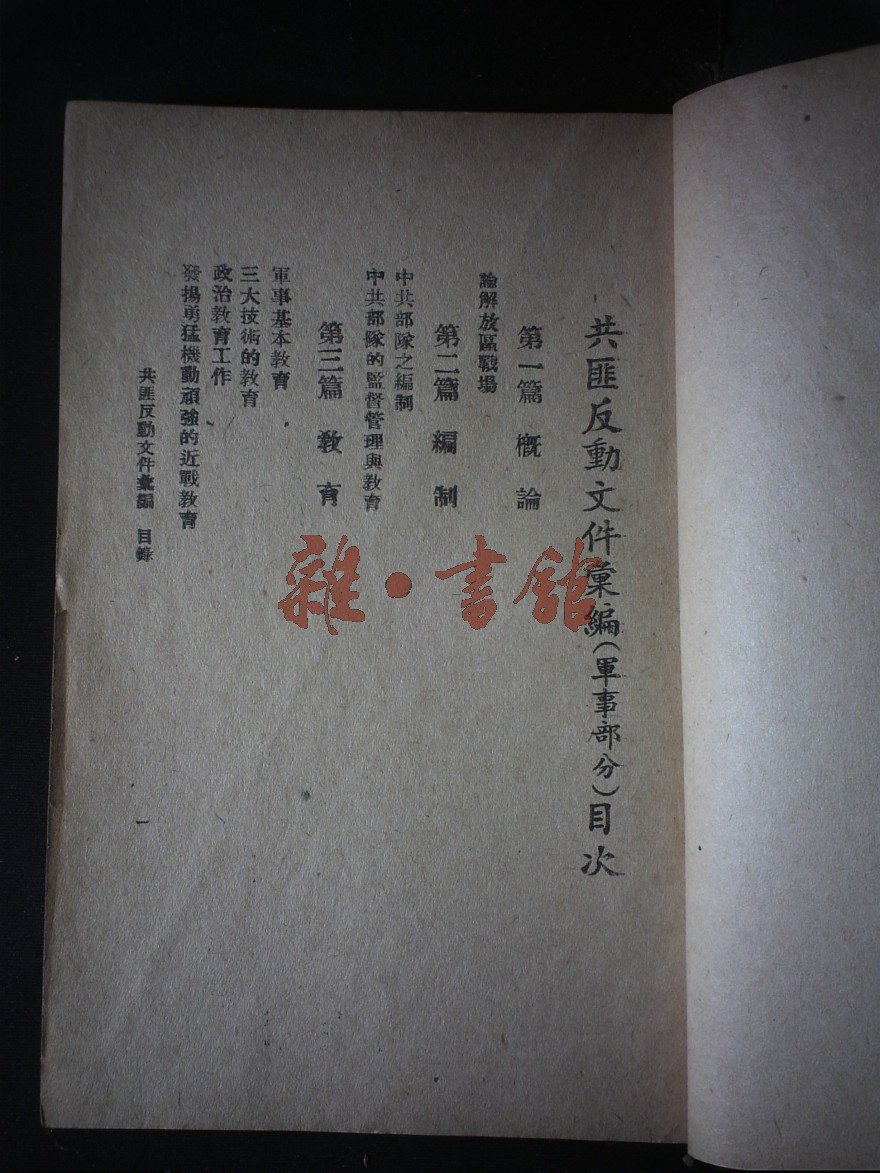 共匪反動文件彙編（軍事部分）目次
第一篇 概論
論解放區戰場
第二篇 編制
中共部隊之編制
中共部隊的監督管理與教育
第三篇 教育
軍事基本教育
三大技術的教育
政治教育工作
發揚勇猛機動頑強的近戰教育
共匪反動文件彙編 目錄
一
雜·書館